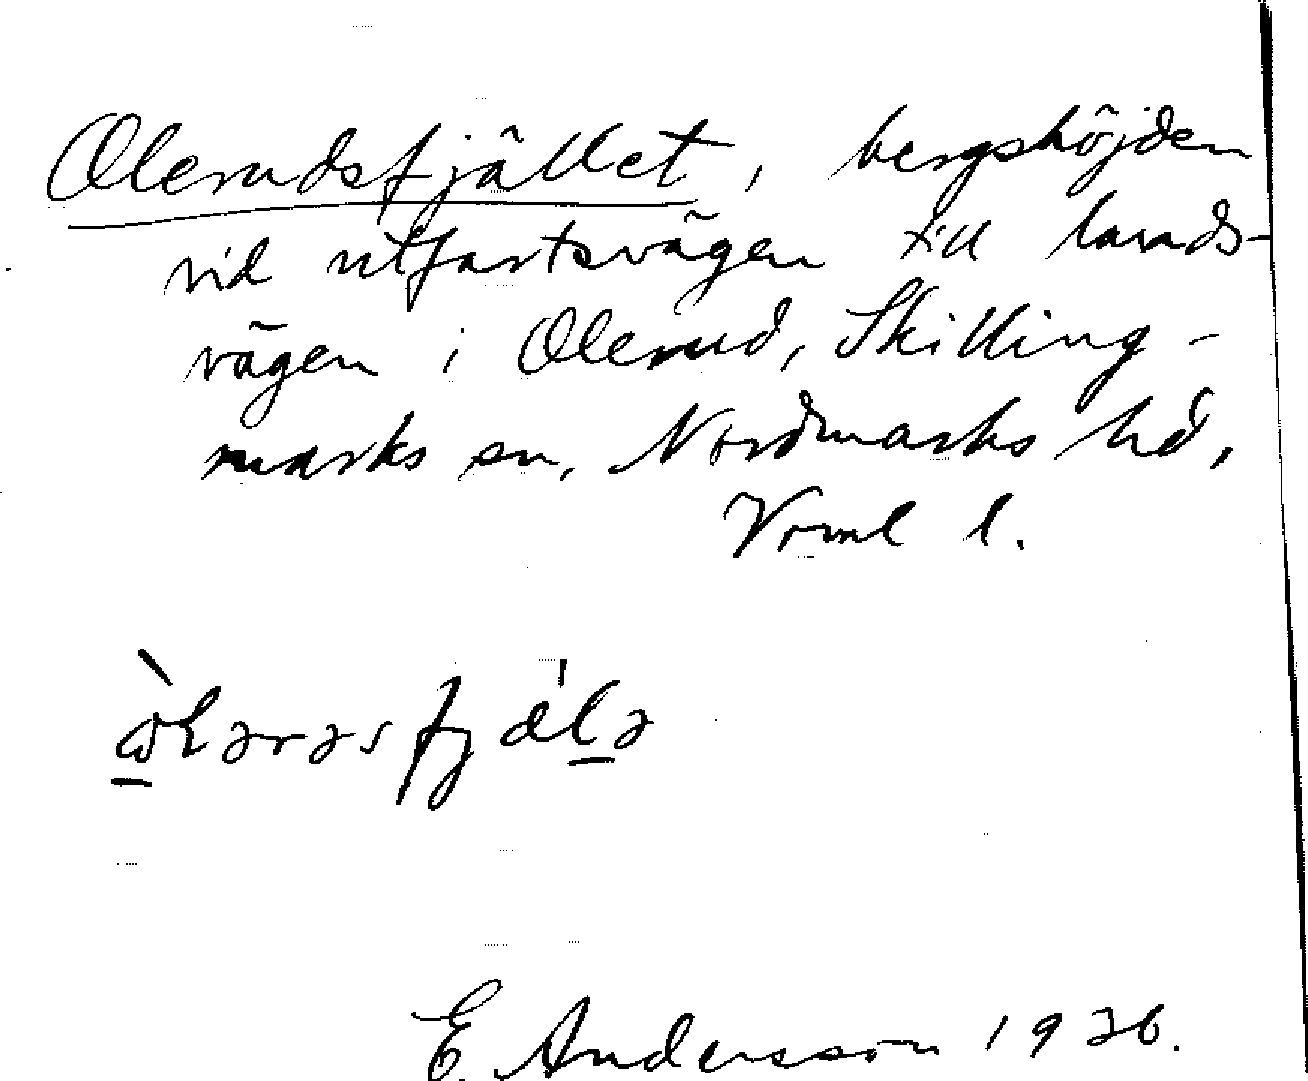 Olerudsfjället, bergshöjden
vid utfartsvägen till lands-
vägen i Olerud, Skilling-
marks sn, Nordmarks hd,
Vrml l.
E. Andersson 1926.